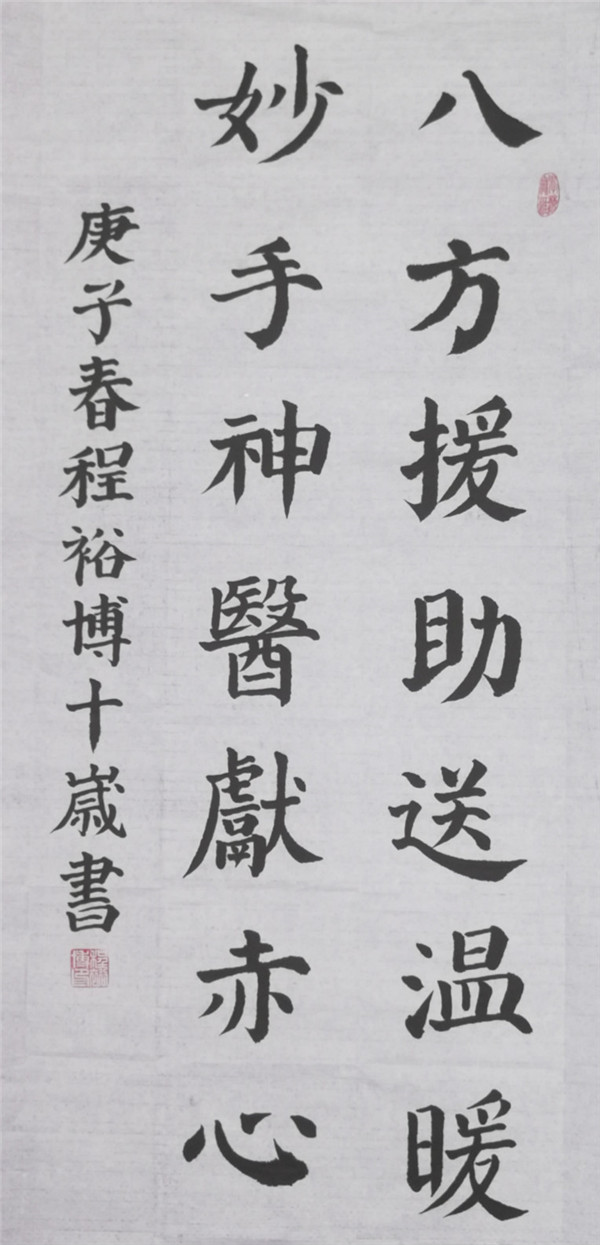 八方援助送温暖
妙手神醫獻赤心
庚子春程裕博十歲書